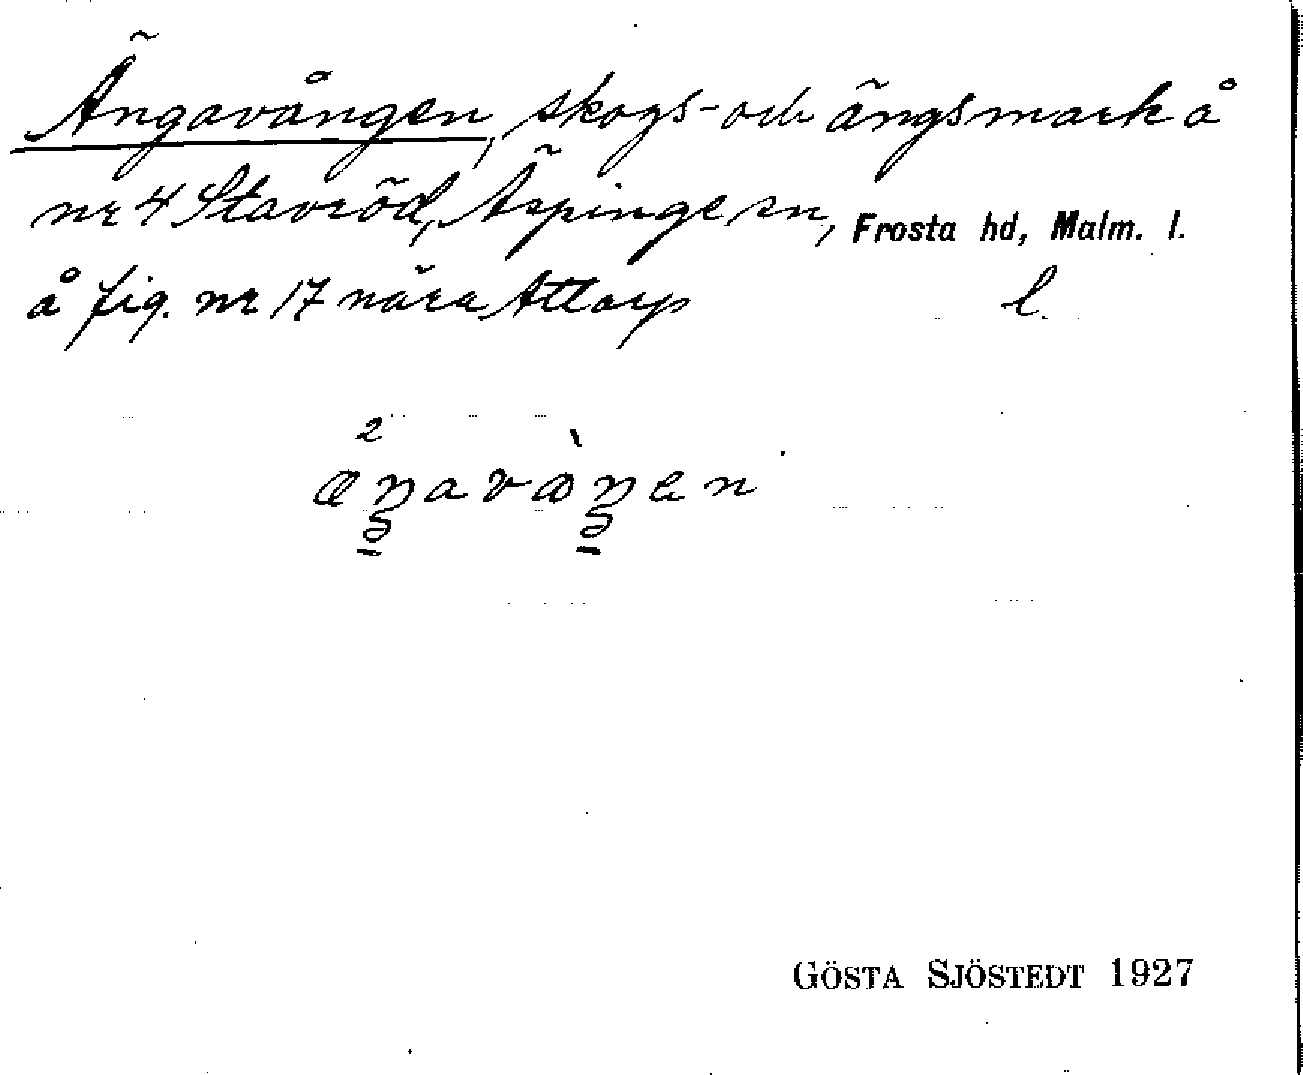 Ängavången, skogs- och ängsmark å
nr 4 Stavröd, Äspinge sn, Frosta hd, Malm. l.
å fig. nr 17 nära Attarp l.
GÖSTA SJÖSTEDT 1927